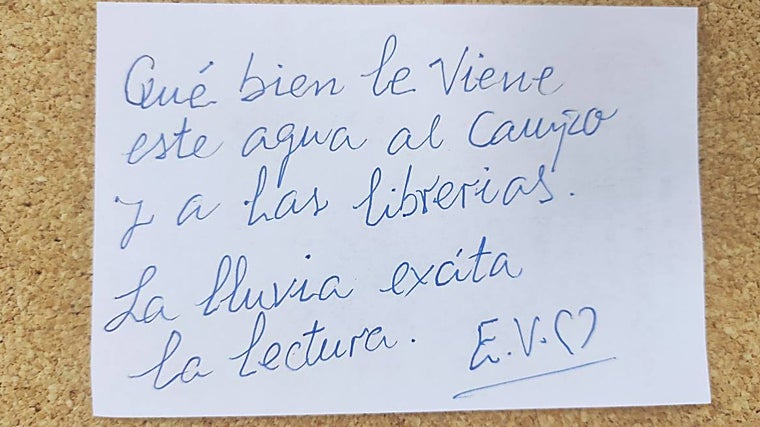 Qué bien le Viene
este agua al Campo
y a las librerias.
La lluvia excita
la lectura.
E.V.♡